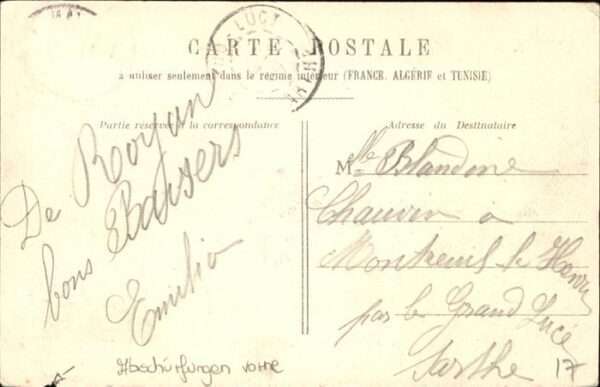 CARTE POSTALE
a utiliser seulement dans le régime intérieur (FRANCE, ALGÉRIE et TUNISIE)
Partie réservée à la correspondance
Adresse du Destinataire
De Royan
bons Baisers
Emilia
Mlle Blandine
Chauvin a
Montreuil le Henri
par le Grand Lucé
Sarthe
Abschürfungen vorne
17
LUCÉ